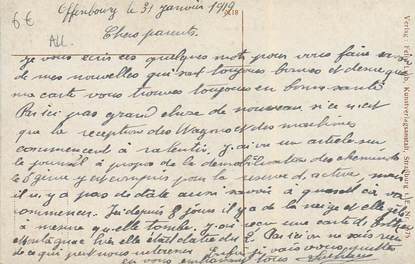 6 €
All.
Offenbourg le 31 janvier 1919
Chers parents.
Je vous écris ces quelques mots pour vous faire savoir
de mes nouvelles qui sont toujours bonnes et desire que
ma carte vous trouve toujours en bonne santé
Par ici pas grand chose de nouveau si ce n'est
que la reception des Wagons et des machines
commencent à ralentir. J'ai vu un article sur
le journal à propos de la demobilisation des chemins de
et compris pour la reserve de active, mais
il n'y a pas de date aussi savoir à quand ça va
commencer. Ici depuis 8 jours il y a de la neige et elle
à mesure qu'elle tombe. J'ai reçu une carte de
hier elle était datée du Par ici on ne sais rien
de ce qui peut nous interesser. je vais vous quitter
en vous embrassant tous